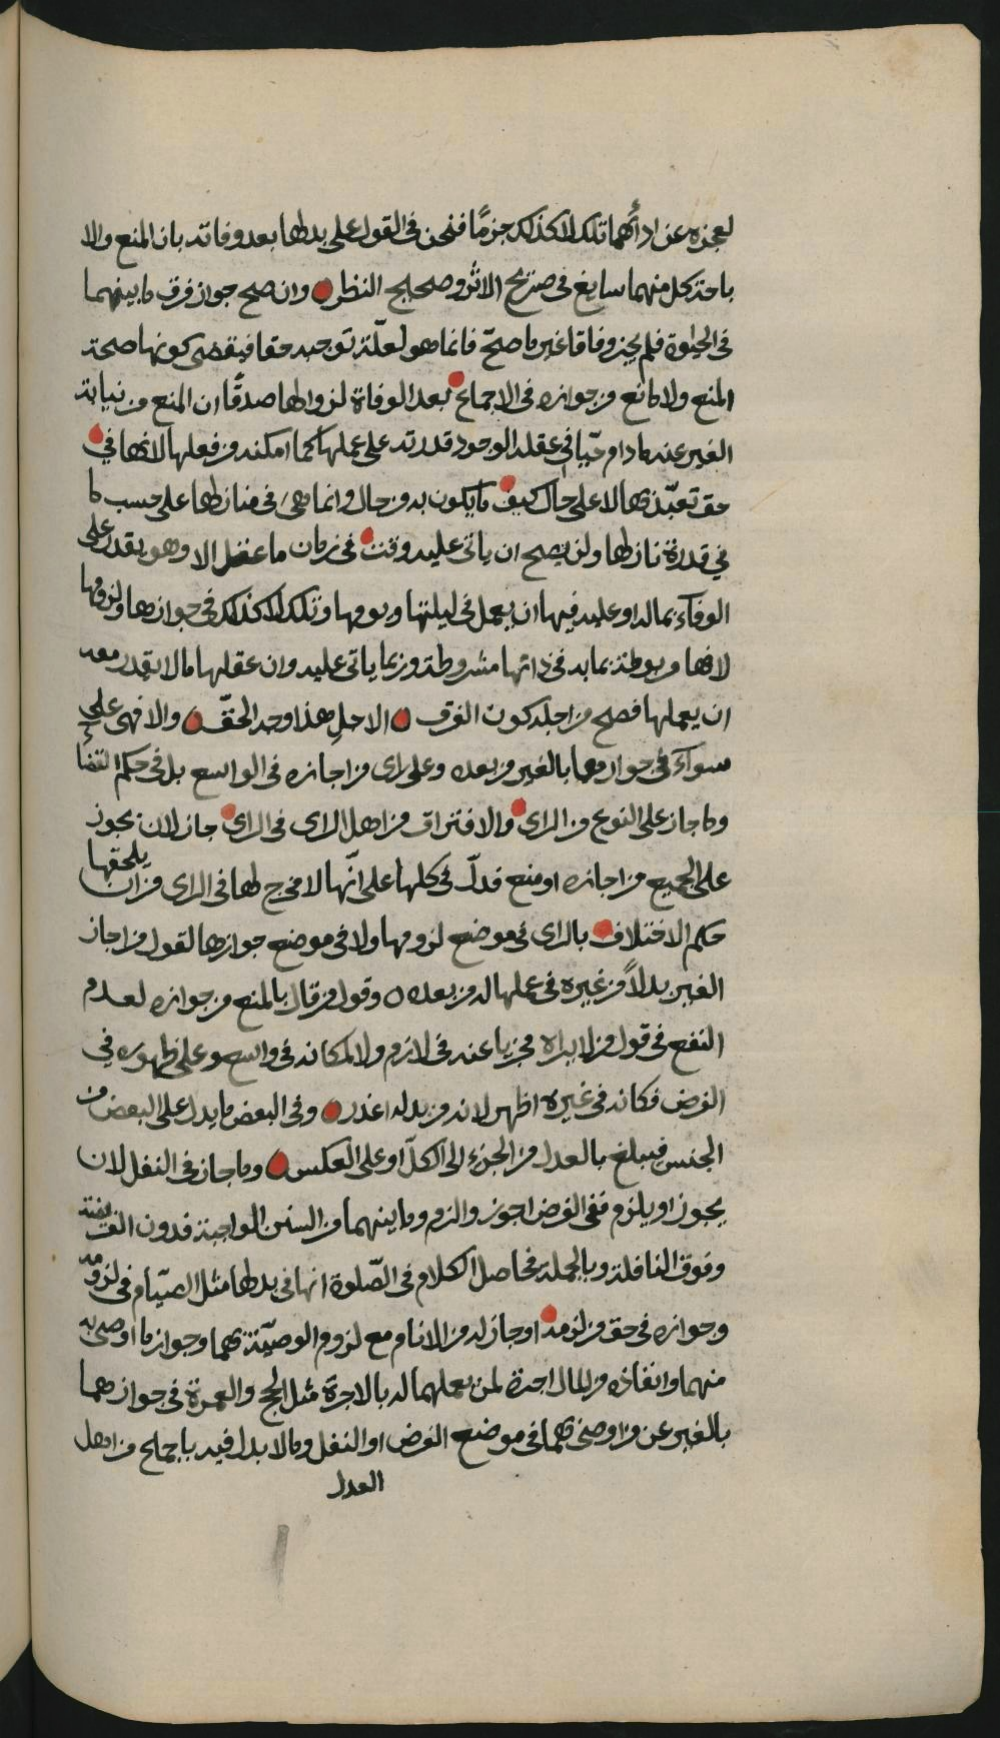 لعجزه عن ادائهما تلك لا كذلك جزمًا فنحن في القول على بدلها بعد وفاته بان المنع والا
باحة كل منهما سايغ في صريح الاثر وصحيح النظر وان صح جواز فرق ما بينهما
في الحيوة فلم يجز وفاقا غير ما صحّ فانما هو لعلّة توجبه حقا فيقضى كونها صحة
المنع ولا مانع من جوازه في الاجماع بعد الوفاة لزوالها صدقًا ان المنع من نيابة
الغير عنه ما دام حيّا في عقله الوجود قدرته على عملها كما امكنه من فعلها لانها في
حق تعبّد بها لا على حال كيف ما يكون به من حال وانما هى في منازلها على حسب ما
في قدرة نازلها ولن يصح ان ياتي عليه وقت في زمان ما عقل الا وهو يقدر على
الوفاء بما له او عليه فيها ان يعمل في ليلتها ويومها وتلك لا كذلك في جوازها ولزومها
لانها مربوطة بما به في ذاتها مشروطة وربما ياتي عليه وان عقلها ما لا يقدر معه
ان يعملها فصح من اجله كون الفرق الا حل هذا وجه الحقّ والا فهي على
سواء في جوازهما بالغير من بعده وعلى راي من اجازه في الواسع بل في حكم القضاء
وما جاز على النوع من الراي والافتراق من اهل الراى في الراي جاز لان يجوز
على الجميع من اجازه او منع فدلّ في كلها على انّها لا مخرج لها في الراى من ان يلحقها
حكم الاختلاف بالراى في موضع لزومها ولا في موضع جوازها لقول من اجاز
الغير بدلاً من غيره في عملها له من بعده وقول من قال بالمنع من جوازه لعدم
النفع في قول من لا يراه مجزيا عنه في لازم ولا لمكانه في واسع وعلى ظهوره في
الفرض فكانه في غيره اظهر لانه من بدله اعذر وفي البعض ما يدل على البعض من
الجنس فيبلغ بالعدل من الجزء الى الكلّ او على العكس وما جاز في النفل لان
يجوز او يلزم ففي الفرض اجوز والزم وما بينهما من السنن الواجبة فدون الفريضة
وفوق النافلة وبالجملة فحاصل الكلام في الصّلوة انها في بدلها مثل الصيّام في لزومه
وجوازه في حق من لزمه او جاز له من الانام مع لزوم الوصيّة بهما وجواز ما اوصى به
منهما وانفاذه من المال اجرة لمن يعملهما له بالاجرة مثل الحج والعمرة في جوازهما
بالغير عن من اوصى بهما في موضع الفرض او النفل وما لا بدل فيه باجماع من اهل
العدل